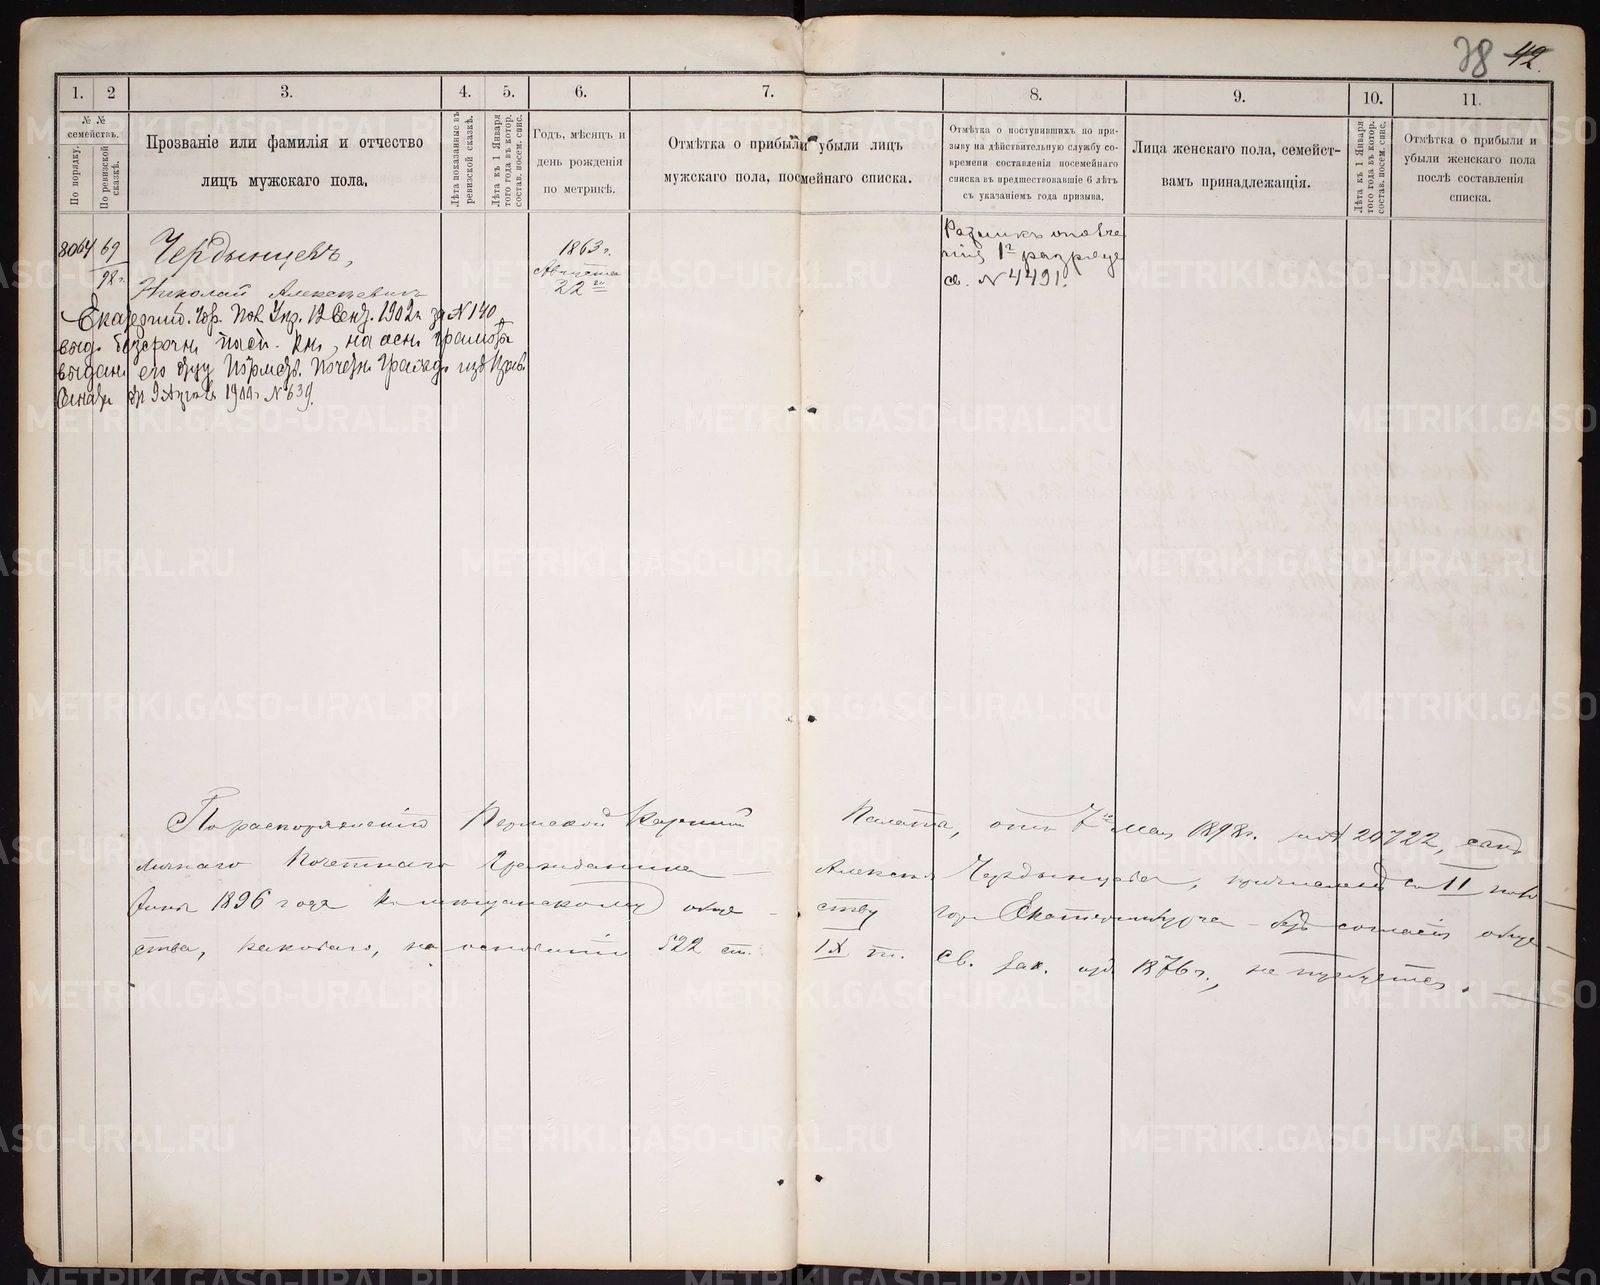 38 42.
1. 2 3. 4. 5. 6. 7. 8. 9. 10. 11.
№ №
семействъ.
По порядку.
По ревизской
сказкѣ.
Прозваніе или фамилія и отчество
лицъ мужскаго пола.
Лѣта показанные въ
ревизской сказкѣ.
Лѣта къ 1 Января
того года въ котор.
состав. посем. спис.
Годъ, мѣсяцъ и
день рожденія
по метрикѣ.
Отмѣтка о прибыли и убыли лицъ
мужскаго пола, посемейнаго списка.
Отмѣтка о поступившихъ по при-
зыву на дѣйствительную службу со-
времени составленія посемейнаго
списка въ предшествовавшіе 6 лѣтъ
съ указаніемъ года призыва.
Лица женскаго пола, семейст-
вамъ принадлежащія.
Лѣта къ 1 Января
того года въ котор.
состав. посем. спис.
Отмѣтка о прибыли и
убыли женскаго пола
послѣ составленія
списка.
8064 69
98 г.
Чердынцевъ,
Николай Алексѣевичъ
1863 г.
Августа
22
Ратникъ ополче
нія 1го разряда
св. № 4491.
Екатерин. Гор. Пол. Упр. 12 Сент. 1902 г. за № 140
выд. безсрочн. на осн. грамоты
выдан. его отцу Почетн. Гражд. изъ Прав.
Сената 1900 г. № 639.
По распоряженію Пермской Казенной Палаты, отъ 7го Мая 1898 г. за № 20722, сынъ
личнаго Почетнаго Гражданина Алексѣя Чердынцева, причисленъ со II полов
1896 года къ мѣщанскому обще-ству гор. Екатеринбурга - безъ согласія обще-
ства, какового, на основаніи 522 ст. IX т. Св. Зак. изд 1876 г., не требуется.
METRIKI.GASO-URAL.RU